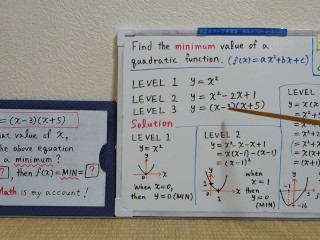 = (x-3)(x+5)
at value of x,
he above equation
a minimum ?
?, then f(?) = MIN = ?
Math is my account!
Find the minimum value of a
quadratic function. (f(x)=ax²+bx+c)
LEVEL 1 y = x²
LEVEL 2 y = x²-2x+1
LEVEL 3 y = (x-3)(x+5)
Solution
LEVEL 1
y = x²
y
x
0
when
x=0,
then y=0 (MIN)
LEVEL 2
y = x²-x-x+1
= x(x-1)-(x-1)
= (x-1)²
y
1
0 1
x
when
x = 1
then
y = 0
(MIN)
LEV
y = (x
= x²
= x²+
= x²+2
= (x+
y
-1
-16